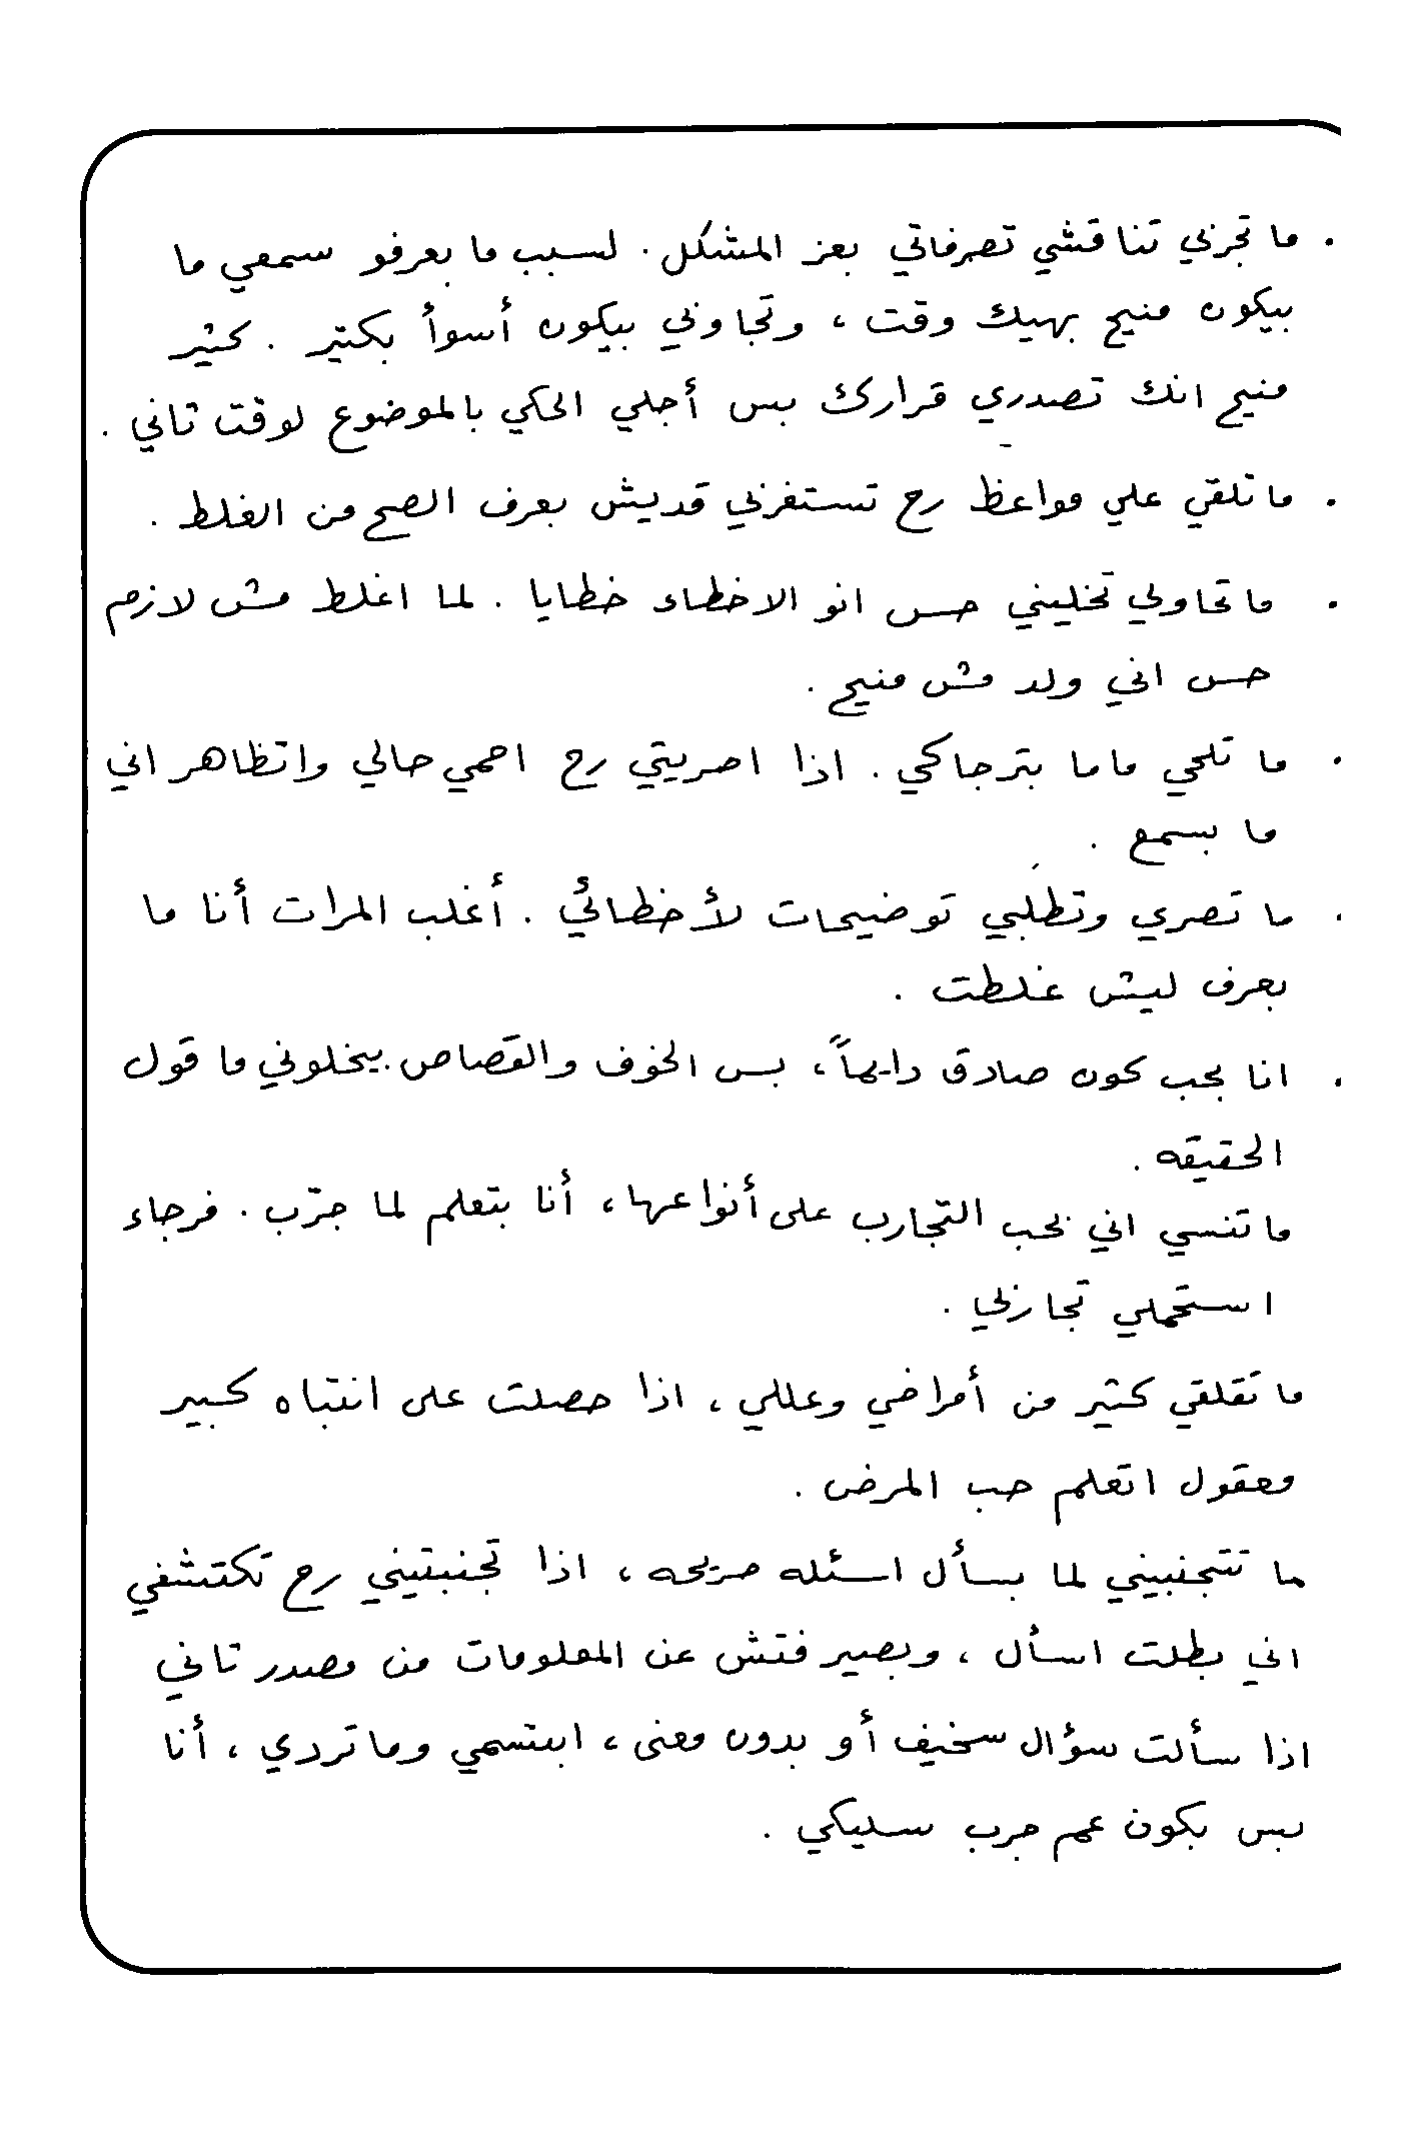 • ما تجربي تناقشي تصرفاتي بعز المشكل . لسبب ما بعرفو سمعي ما
بيكون منيح بهيك وقت ، وتجاوبي بيكون أسوأ بكتير . كثير
منيح انك تصدري قرارك بس أجلي الحكي بالموضوع لوقت تاني .
• ما تلقي علي مواعظ رح تستغربي قديش بعرف الصح من الغلط .
• ما تحاولي تخليني حس انو الاخطاء خطايا . لما اغلط مش لازم
حس اني ولد مش منيح .
• ما تلحي ماما بترجاكي . اذا اصريتي رح احمي حالي واتظاهر اني
ما بسمع .
• ما تصري وتطلبي توضيحات لأخطائي . أغلب المرات أنا ما
بعرف ليش غلطت .
• انا بحب كون صادق دايماً ، بس الخوف والقصاص بيخلوني ما قول
الحقيقه .
ما تنسي اني بحب التجارب على أنواعها ، أنا بتعلم لما جرّب . فرجاء
استحملي تجاربي .
ما تقلقي كثير من أمراضي وعللي ، اذا حصلت على انتباه كبير
معقول اتعلم حب المرض .
ما تتجنبيني لما بسأل اسئله صريحه ، اذا تجنبتيني رح تكتشفي
اني بطلت اسأل ، وبصير فتش عن المعلومات من مصدر تاني
اذا سألت سؤال سخيف أو بدون معنى ، ابتسمي وما تردي ، أنا
بس بكون عم جرب سليكي .